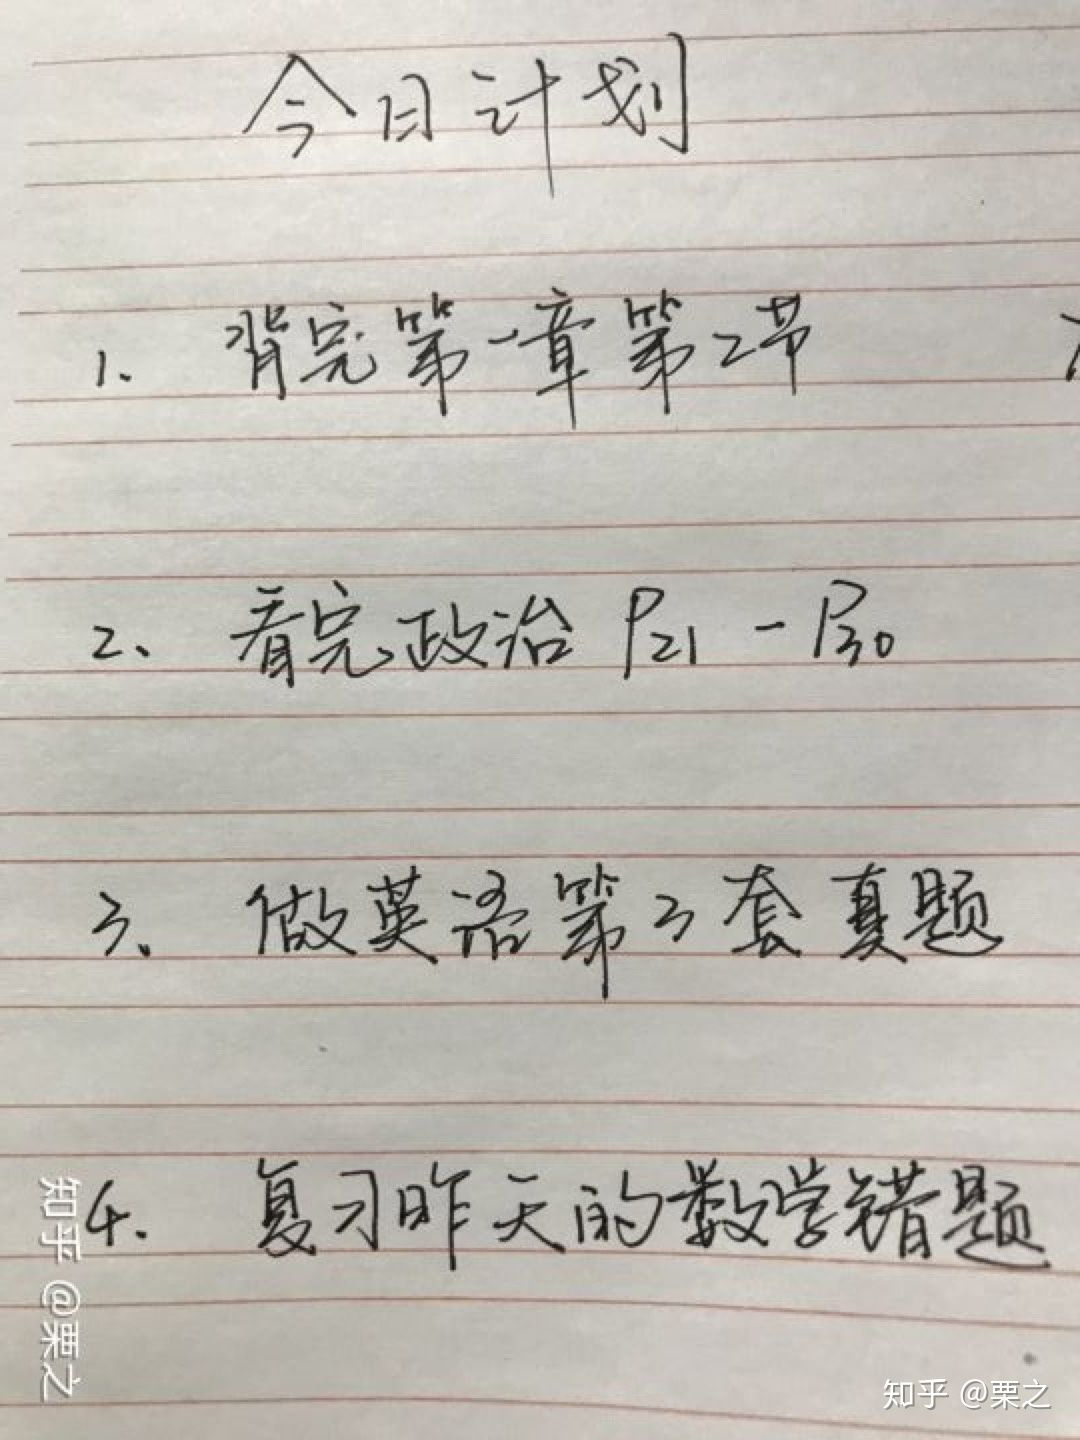 今日计划
1. 背完第一章第2节
2、看完政治 P21 - P30
3、做英语第3套真题
4. 复习昨天的数学错题
知乎 @栗之
知乎 @栗之